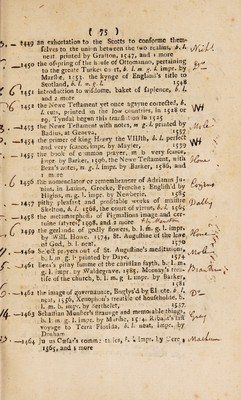 ( 75 )
1449 an exhortation to the Scotts to conforme them-
selves to the union between the two realms, b. l.
neat, printed by Grafton, 1547, and 1 more
1450 the ofspring of the house of Ottomanno, pertaining
to the greate Turkes court, b. l. m. g. l. impr. by
Marshe, 1553, the kynge of England's title to
Scotland, b. l. m. g. l. 1548
1451 introduction to wisdome, banket of sapience, b. l.
and 2 more
1452 the Newe Testament yet once agayne corrected, b.
l. cuts, printed in the low countries, in 1528 or
29. Tyndal began this translation in 1525
1453 the Newe Testament with notes, m g. l. printed by
Badius, at Geneva, 1557
1454 the primer of king Henry the VIIIth, b. l. perfect
and very scarce, impr. by Mayler, 1539
1455 the book of common prayer, m b. very scarce,
impr. by Barker, 1596, the Newe Testament, with
Beza's notes, m. g. l. impr. by Barker, 1586, and
1 more
1456 the nomenclator or remembrancer of Adrianus Ju-
nius, in Latine, Greeke, Frenche; Englished by
Higins, m. g. l. impr. by Newberie, 1585
1457 pithy pleasaunt and profitable workes of maister
Skelton, b. l. 1568, the court of virtue, b. l. 1565
1458 the metamorphosis of Pigmalions image and cer-
taine satyres, 1598, and 2 more
1459 the garlands of godly flowers, b. l. m. g. l. impr.
by Will. Howe, 1574, St. Augustine of the love
of God, b. l. neat, 1570
1460 Select prayers out of St. Augustine's meditations,
b. l. m. g. l. printed by Daye, 1574
1461 Beza's pithy summe of the christian fayth, b. l. m.
g. l. impr. by Waldegrave, 1585, Mornay's trea-
tise of the church, b. l. m. g. l. impr. by Barker,
1581
1462 the image of governaunce, Englys'd by Elyote, b. l.
neat, 1556, Xenophon's treatise of householde, b.
l. m. b. impr. by Berthelet, 1537
1463 Sebastian Munster's straunge and memorable things,
b. l. m. g. l. impr. by Marshe, 1574, Ribault's last
voyage to Terra Florida, b. l. neat, impr. by
Denham,
1464 Julius Cæsar's commentaries, b. l. impr. by Seres
1565, and 2 more